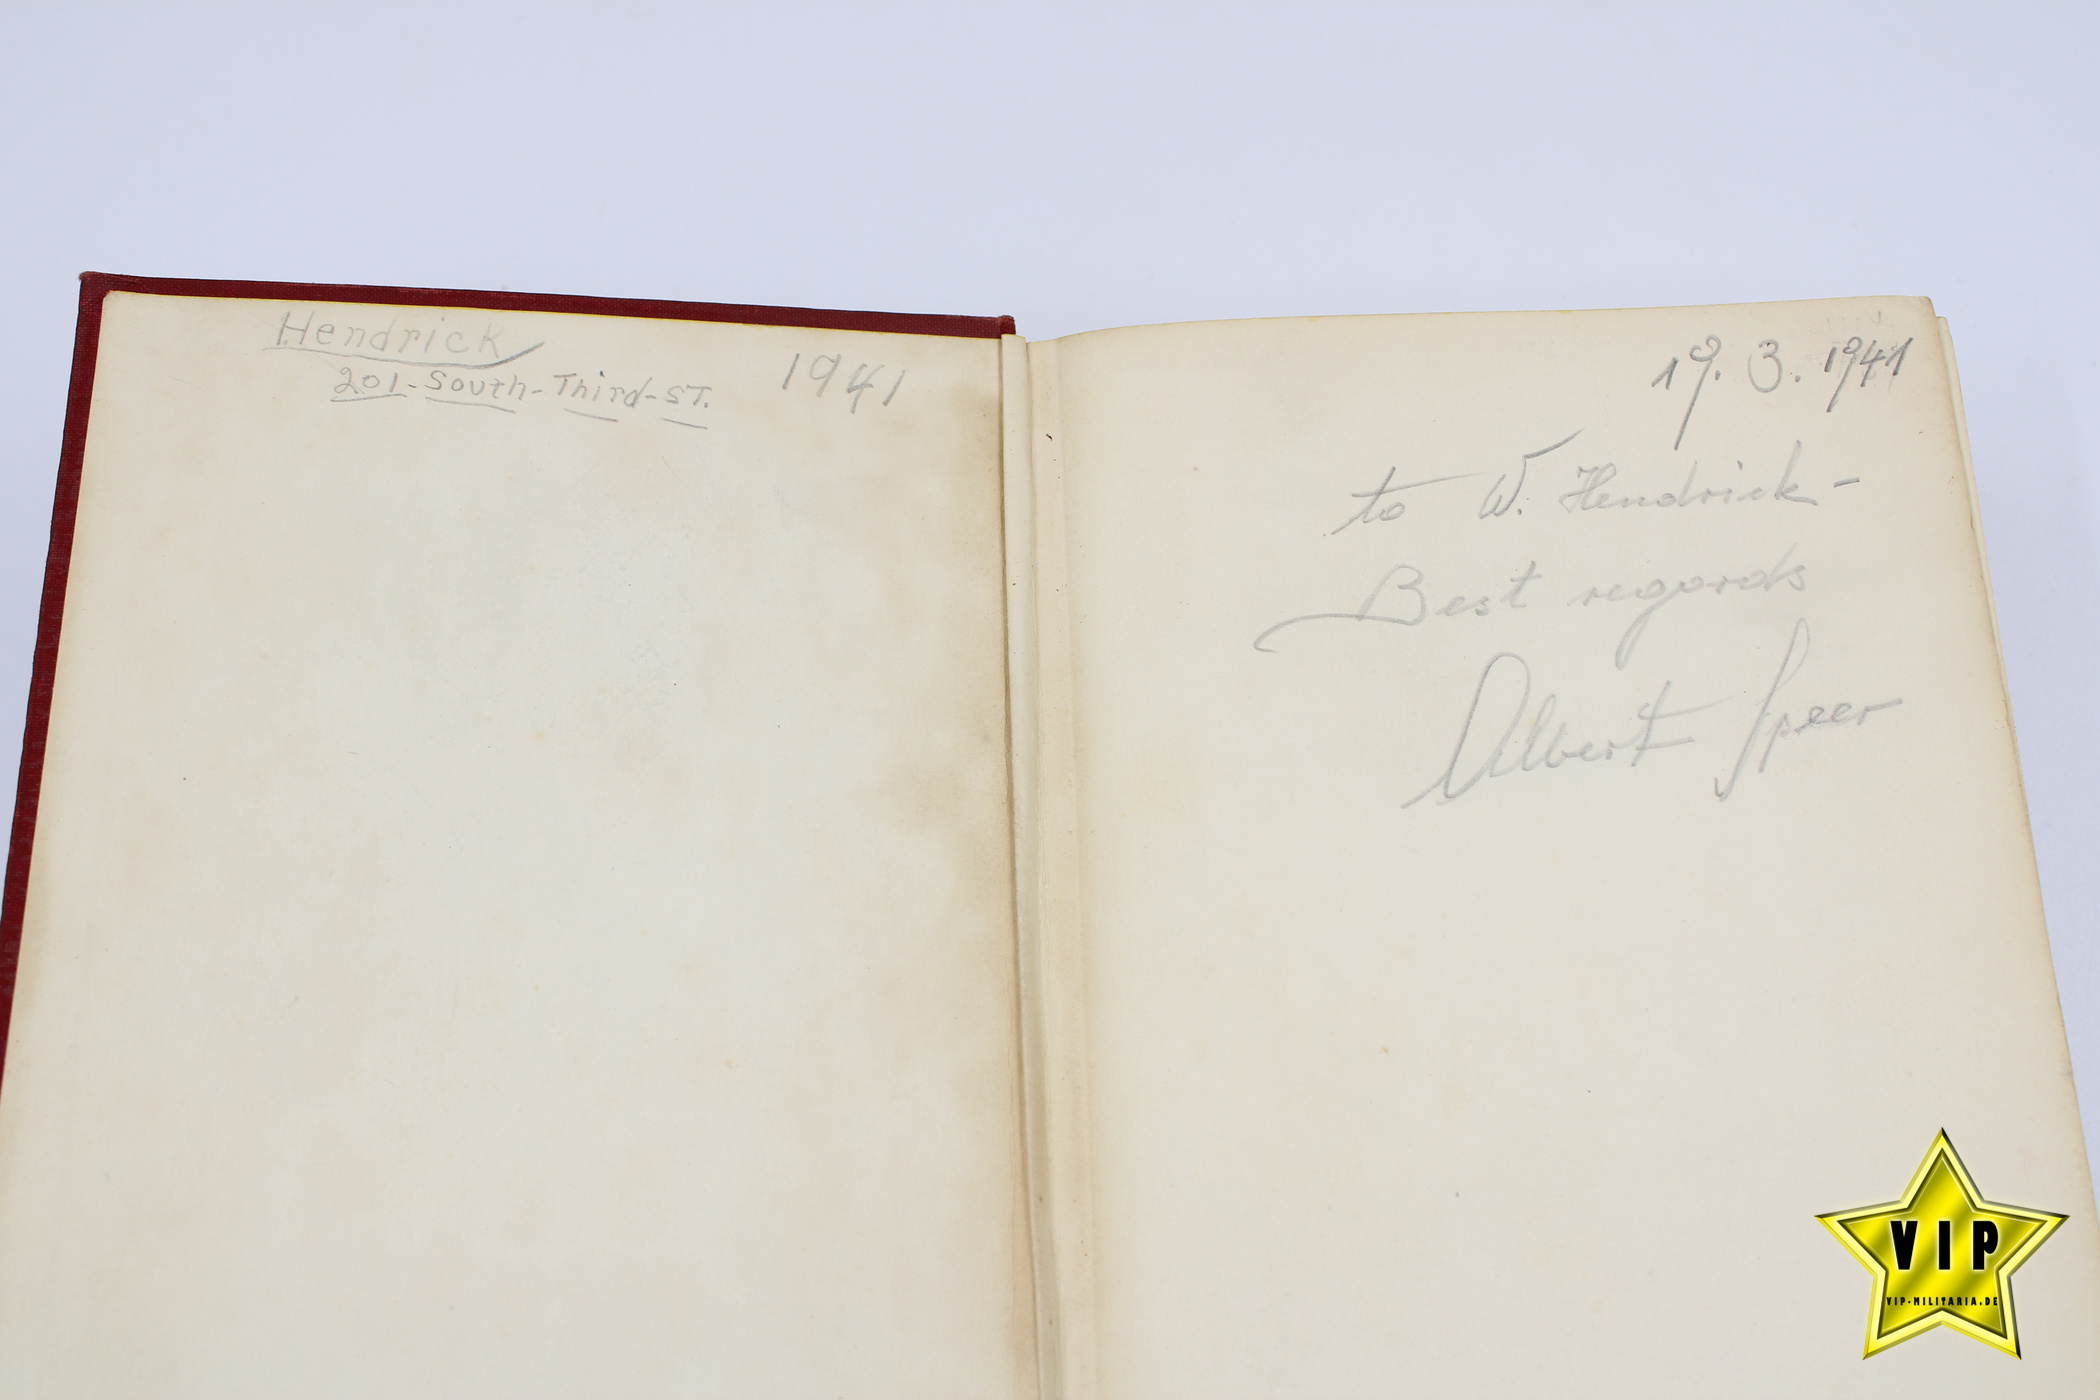 Hendrick
201-South-Third-ST.
1941
19. 3. 1941
to W. Hendrick -
Best regards
Albert Speer
VIP
VIP-MILITARIA.DE